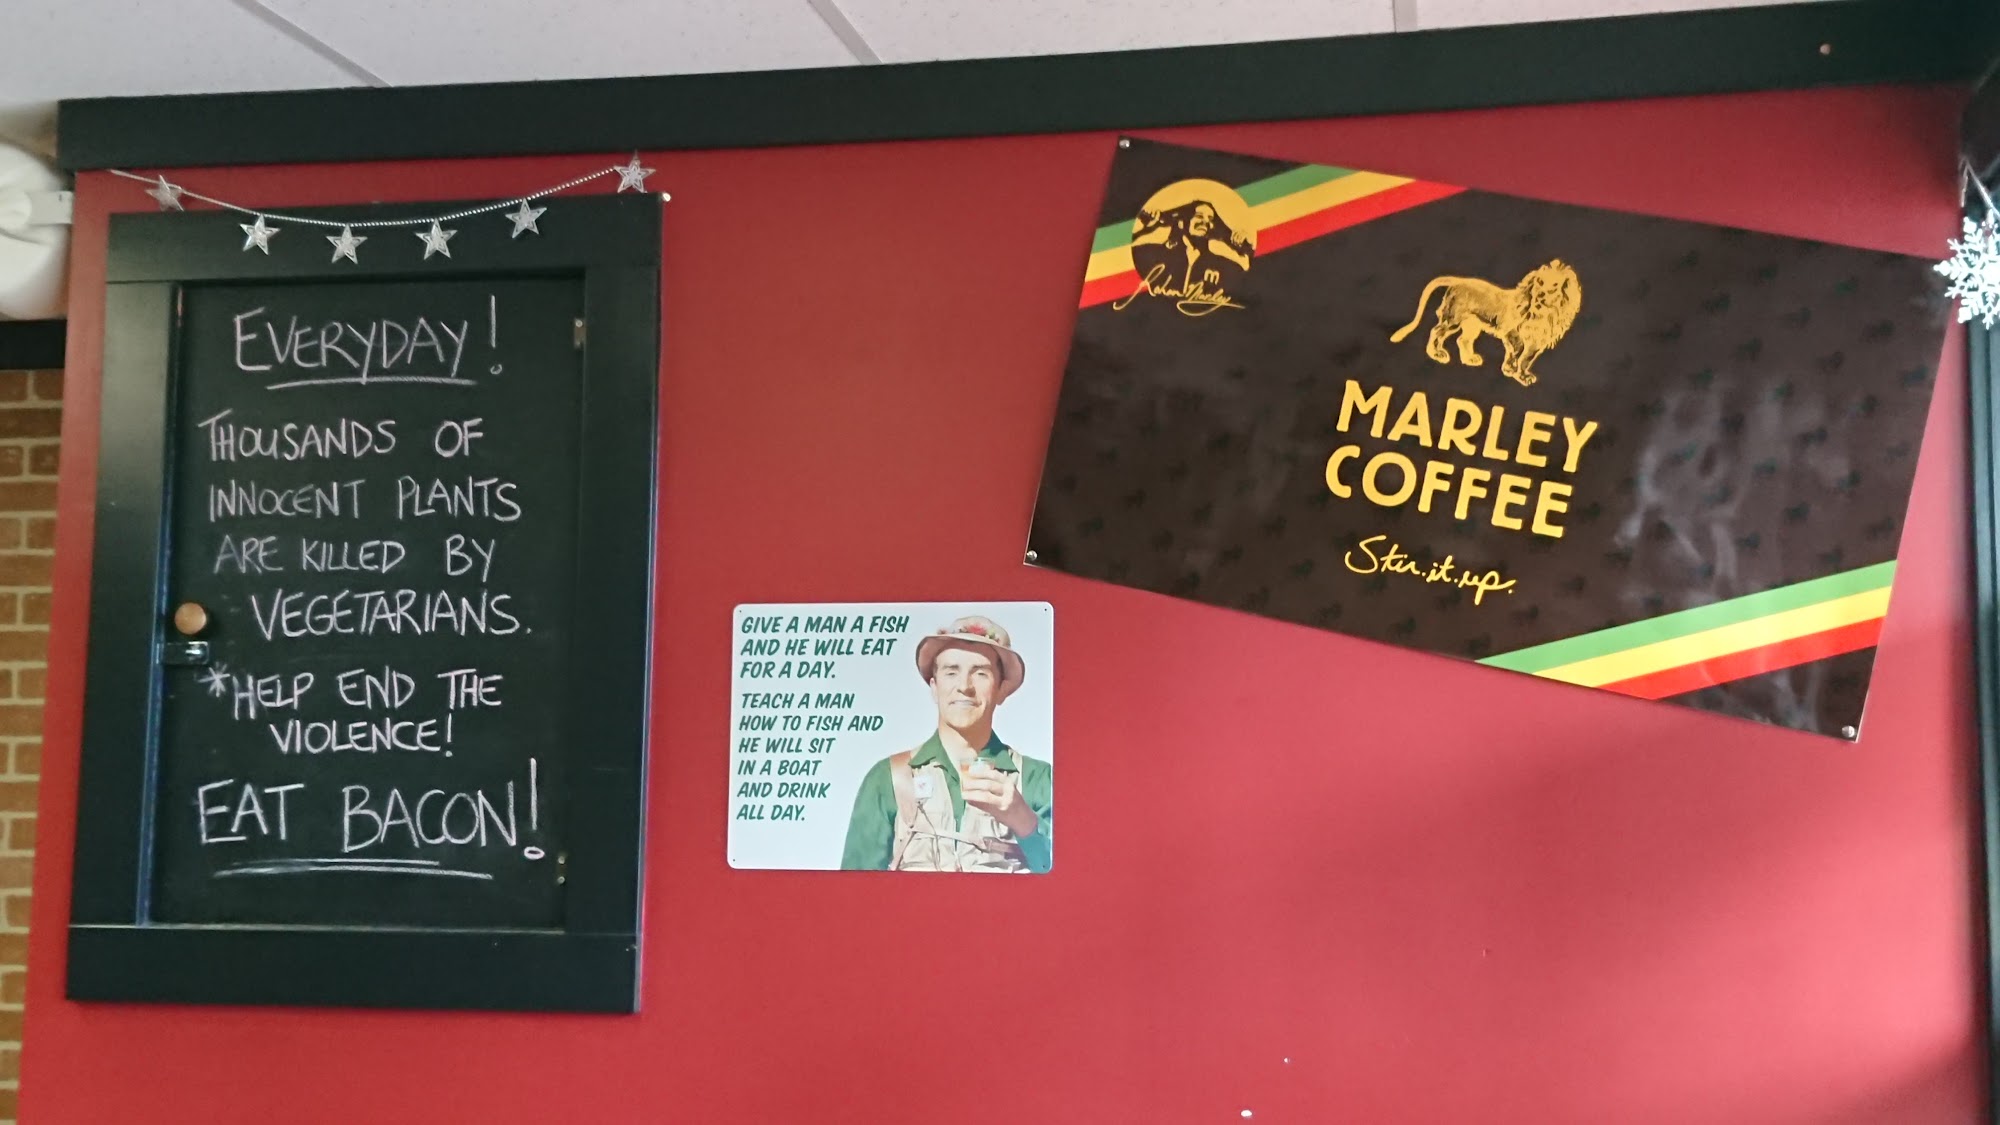 EVERYDAY!
THOUSANDS OF
INNOCENT PLANTS
ARE KILLED BY
VEGETARIANS.
*HELP END THE
VIOLENCE!
EAT BACON!
GIVE A MAN A FISH
AND HE WILL EAT
FOR A DAY.
TEACH A MAN
HOW TO FISH AND
HE WILL SIT
IN A BOAT
AND DRINK
ALL DAY.
m
Rohan Marley
MARLEY
COFFEE
Stir.it.up.